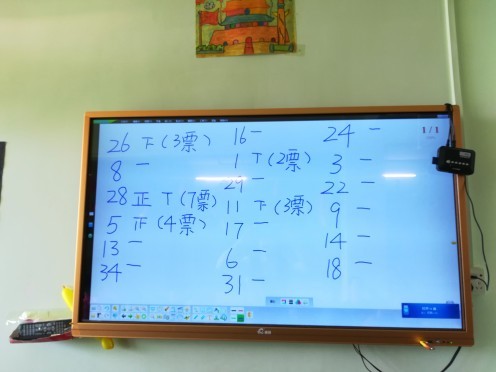 26 下(3票)
8 一
28 正丅(7票)
5 正(4票)
13 一
34 一
16 一
1 丅(2票)
29 一
11 下(3票)
17 一
6 一
31 一
24 一
3 一
22 一
9 一
14 一
18 一
1/1